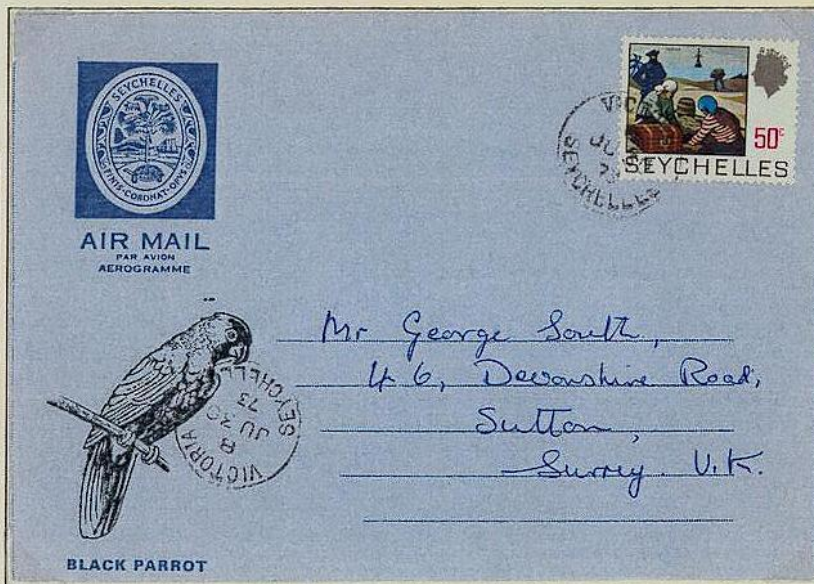 SEYCHELLES
FINIS·CORONAT·OPVS
AIR MAIL
PAR AVION
AEROGRAMME
50c
SEYCHELLES
VIC
JU
73
SEYCHELLES
Mr George South,
46, Devonshire Road,
Sutton,
Surrey. U.K.
VICTORIA
8
JU 30
73
SEYCHELL
BLACK PARROT